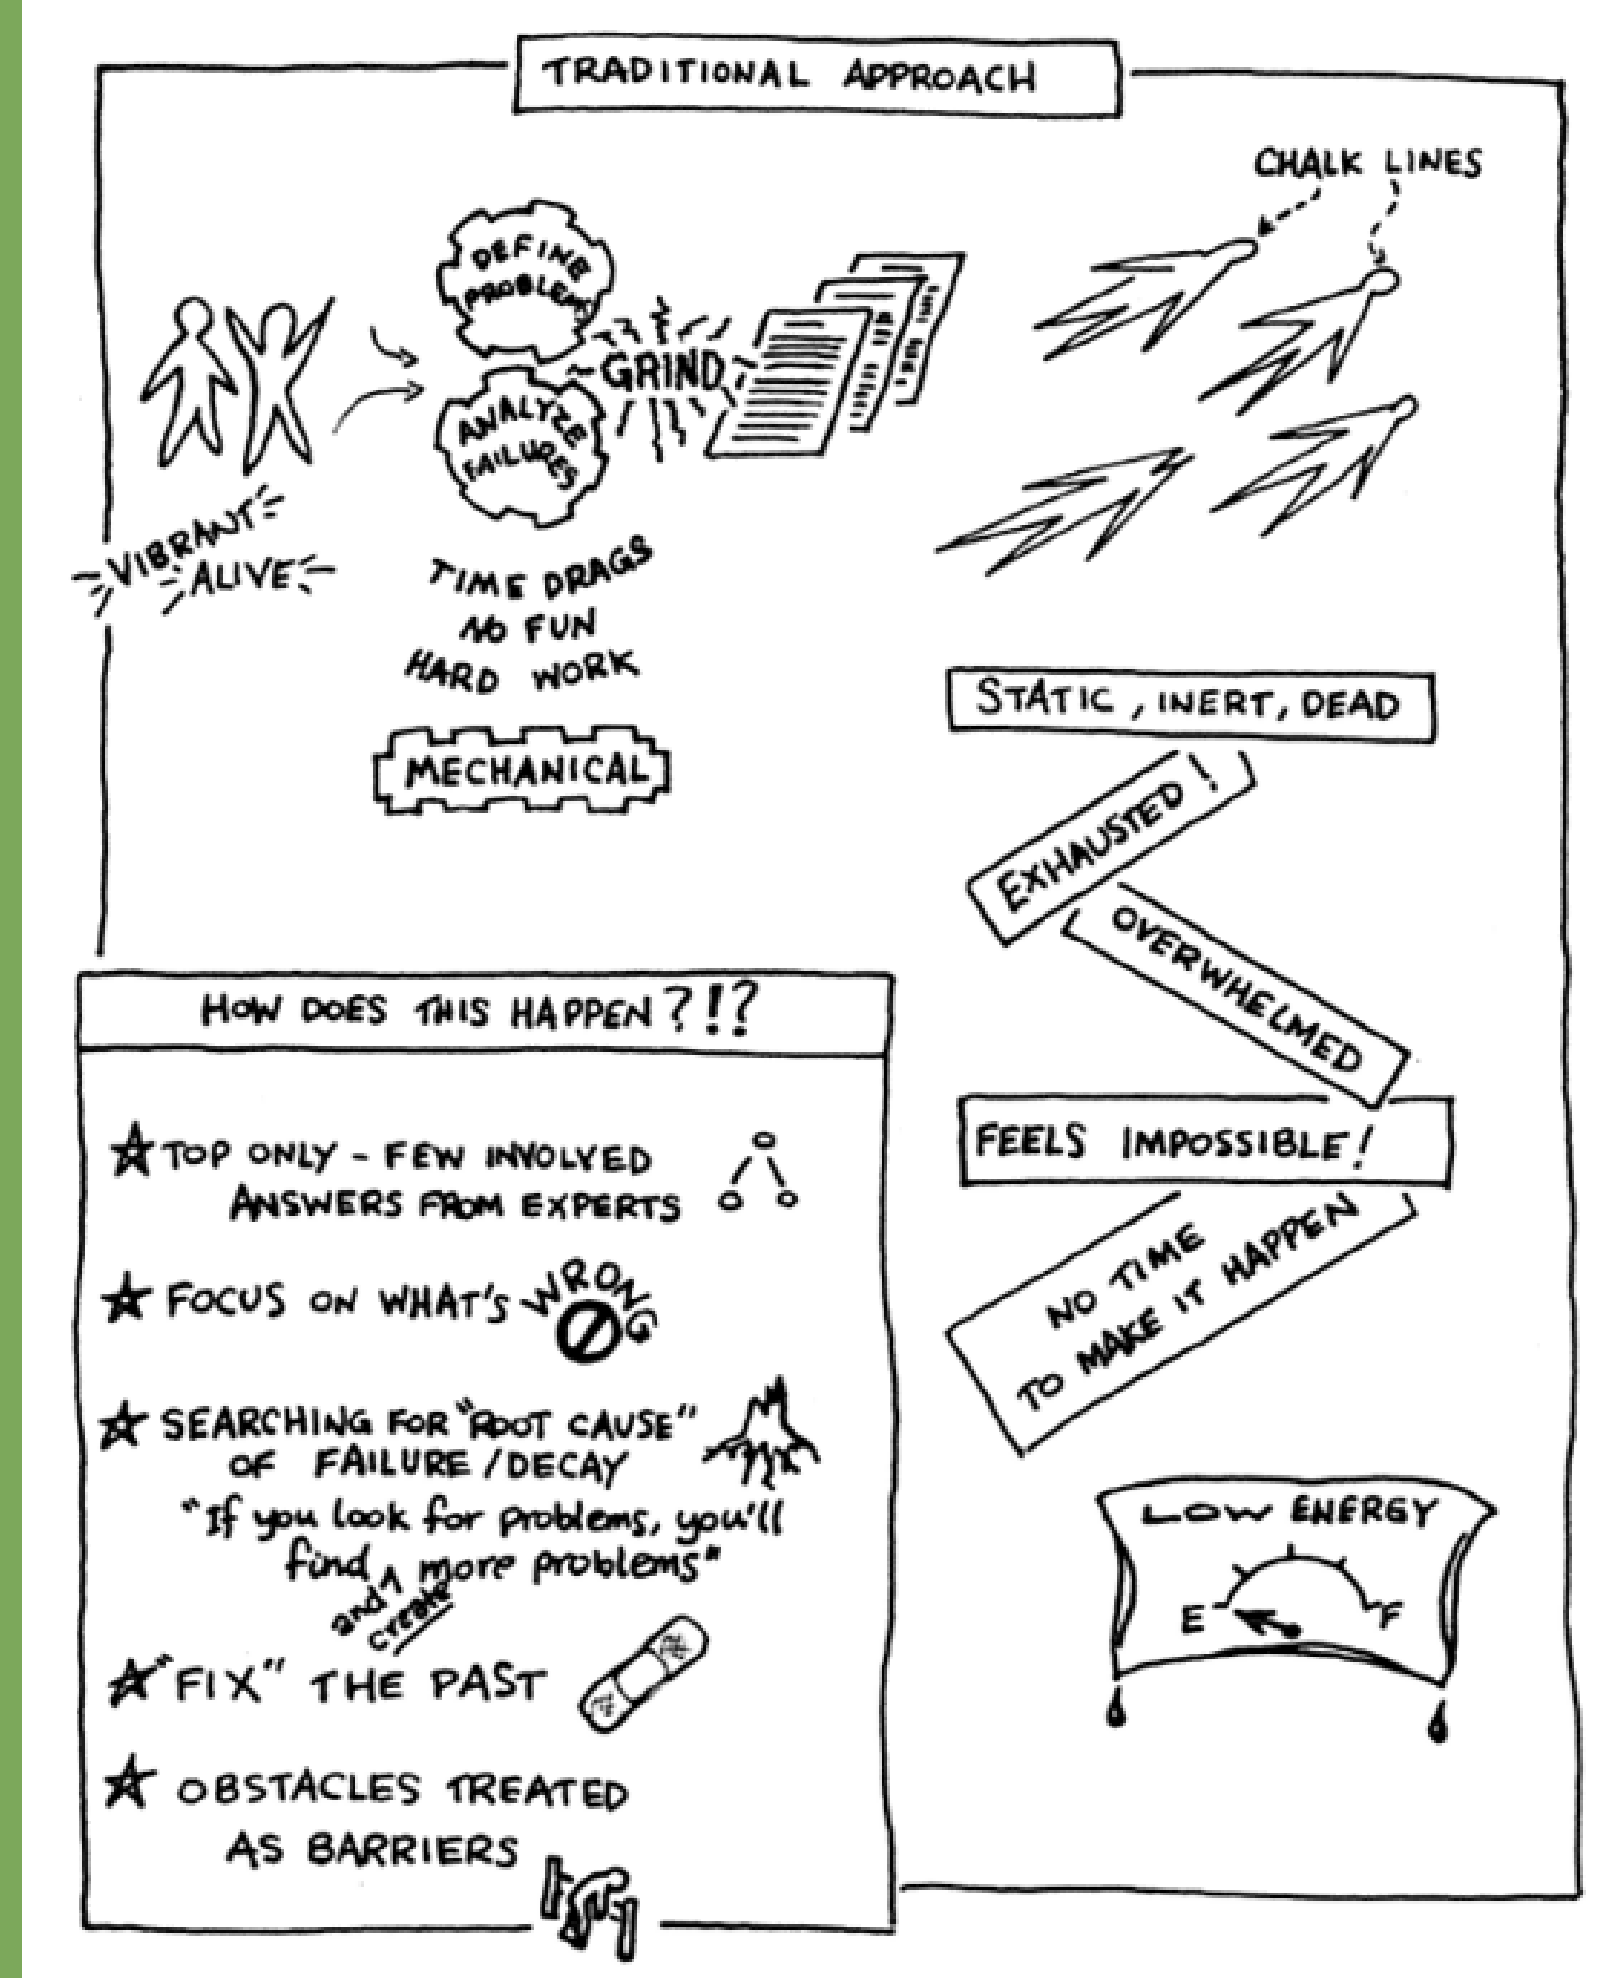 TRADITIONAL APPROACH
CHALK LINES
DEFINE
PROBLEM
GRIND
ANALYZE
FAILURES
VIBRANT
ALIVE
TIME DRAGS
NO FUN
HARD WORK
MECHANICAL
STATIC, INERT, DEAD
EXHAUSTED!
OVERWHELMED
FEELS IMPOSSIBLE!
NO TIME
TO MAKE IT HAPPEN
LOW ENERGY
E F
HOW DOES THIS HAPPEN?!?
TOP ONLY - FEW INVOLVED
ANSWERS FROM EXPERTS
FOCUS ON WHAT'S WRONG
SEARCHING FOR "ROOT CAUSE"
OF FAILURE/DECAY
"If you look for problems, you'll
find more problems"
and
create
"FIX" THE PAST
OBSTACLES TREATED
AS BARRIERS